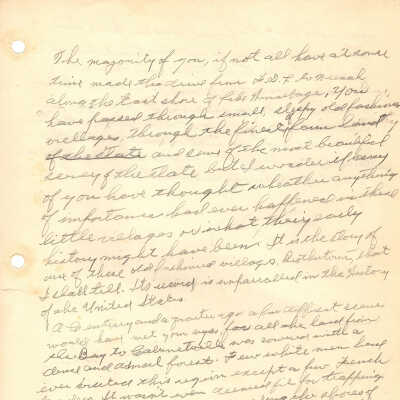 The majority of you, if not all have at some
time made the drive from F.D.L to Neenah
along the East shore of Lake Winnebago, You
have passed through small, sleepy old fashion
villages, through the finest farm land
of the State and some of the most beautiful
scenery of the state but I wonder if many
of you have thought wheather anything
of importance had ever happened in these
little villages or what their early
history might have been. It is the story of
one of these old fashioned villages, that
I shall tell. Its record is unparralled in the History
of the United States.
A Century and a quarter ago a different scene
would have met your eyes, for all the land from
the Bay to was covered with a
dense and small forest. Few white men had
ever this region except a few French
It wasn't even for trapping
the shores of